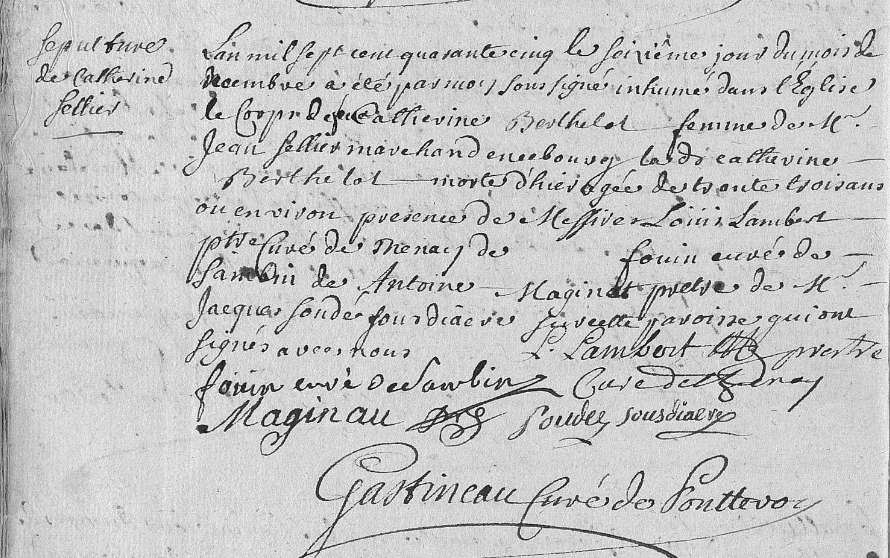 sepulture
de Catherine
Sellier
L'an mil sept cent quarante cinq le seizième jour du mois de
decembre à été par moy soussigné inhumé dans l'Eglise
le Corps de Catherine Berthelot femme de Mr.
Jean Sellier marchand en ce bourg la de Catherine
Berthelot morte d'hier agée de trente trois ans
ou environ presence de Messires Louis Lambert
ptre Curé de Thenay de fouin curé de
Sambin de Antoine Maginet pretre de Mr.
Jacques Sondé sousdiacre sur cette paroisse qui ont
signés avec nous L. Lambert prestre
fouin curé de Sambin Curé de Thenay
Maginau ptre soudé sousdiacre
Gastineau Curé de Pontlevoy